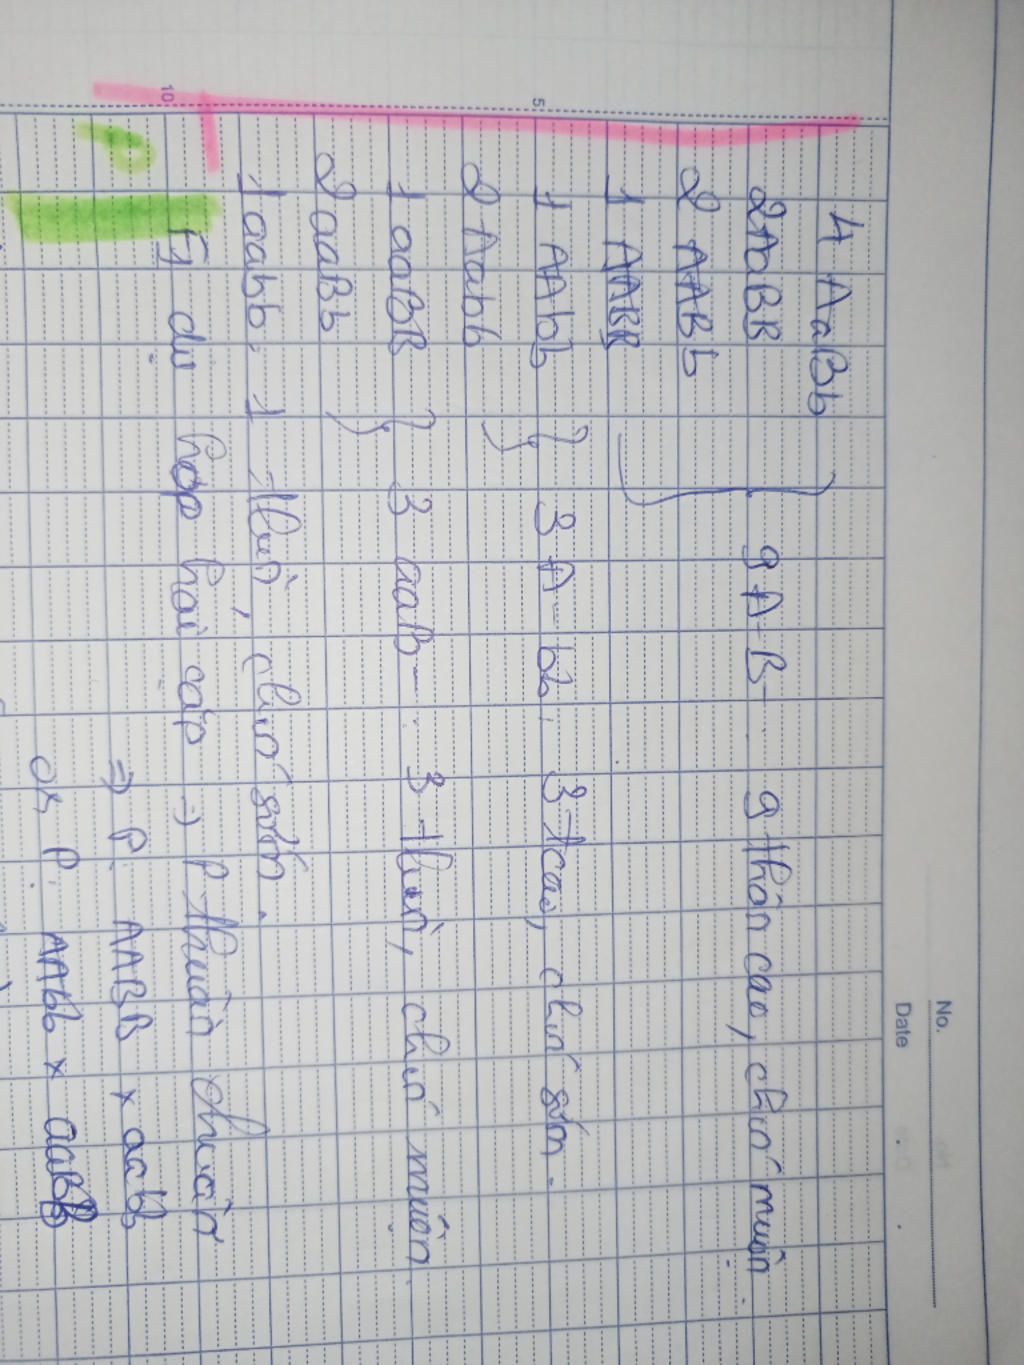 No.
Date
4 AaBb
2AaBB 9 A-B- 9 thân cao, chín muộn
2 AABb
1 AABB
5
1 AAbb 3 A-bb: 3 tcao, chín sớm.
2 Aabb
1 aaBB 3 aaB-: 3 thấp, chín muộn
2 aaBb
1 aabb: 1 thấp, chín sớm.
10
F1 dị hợp hai cặp => P thuần chủng
=> P: AABB x aabb
P: AAbb x aaBB